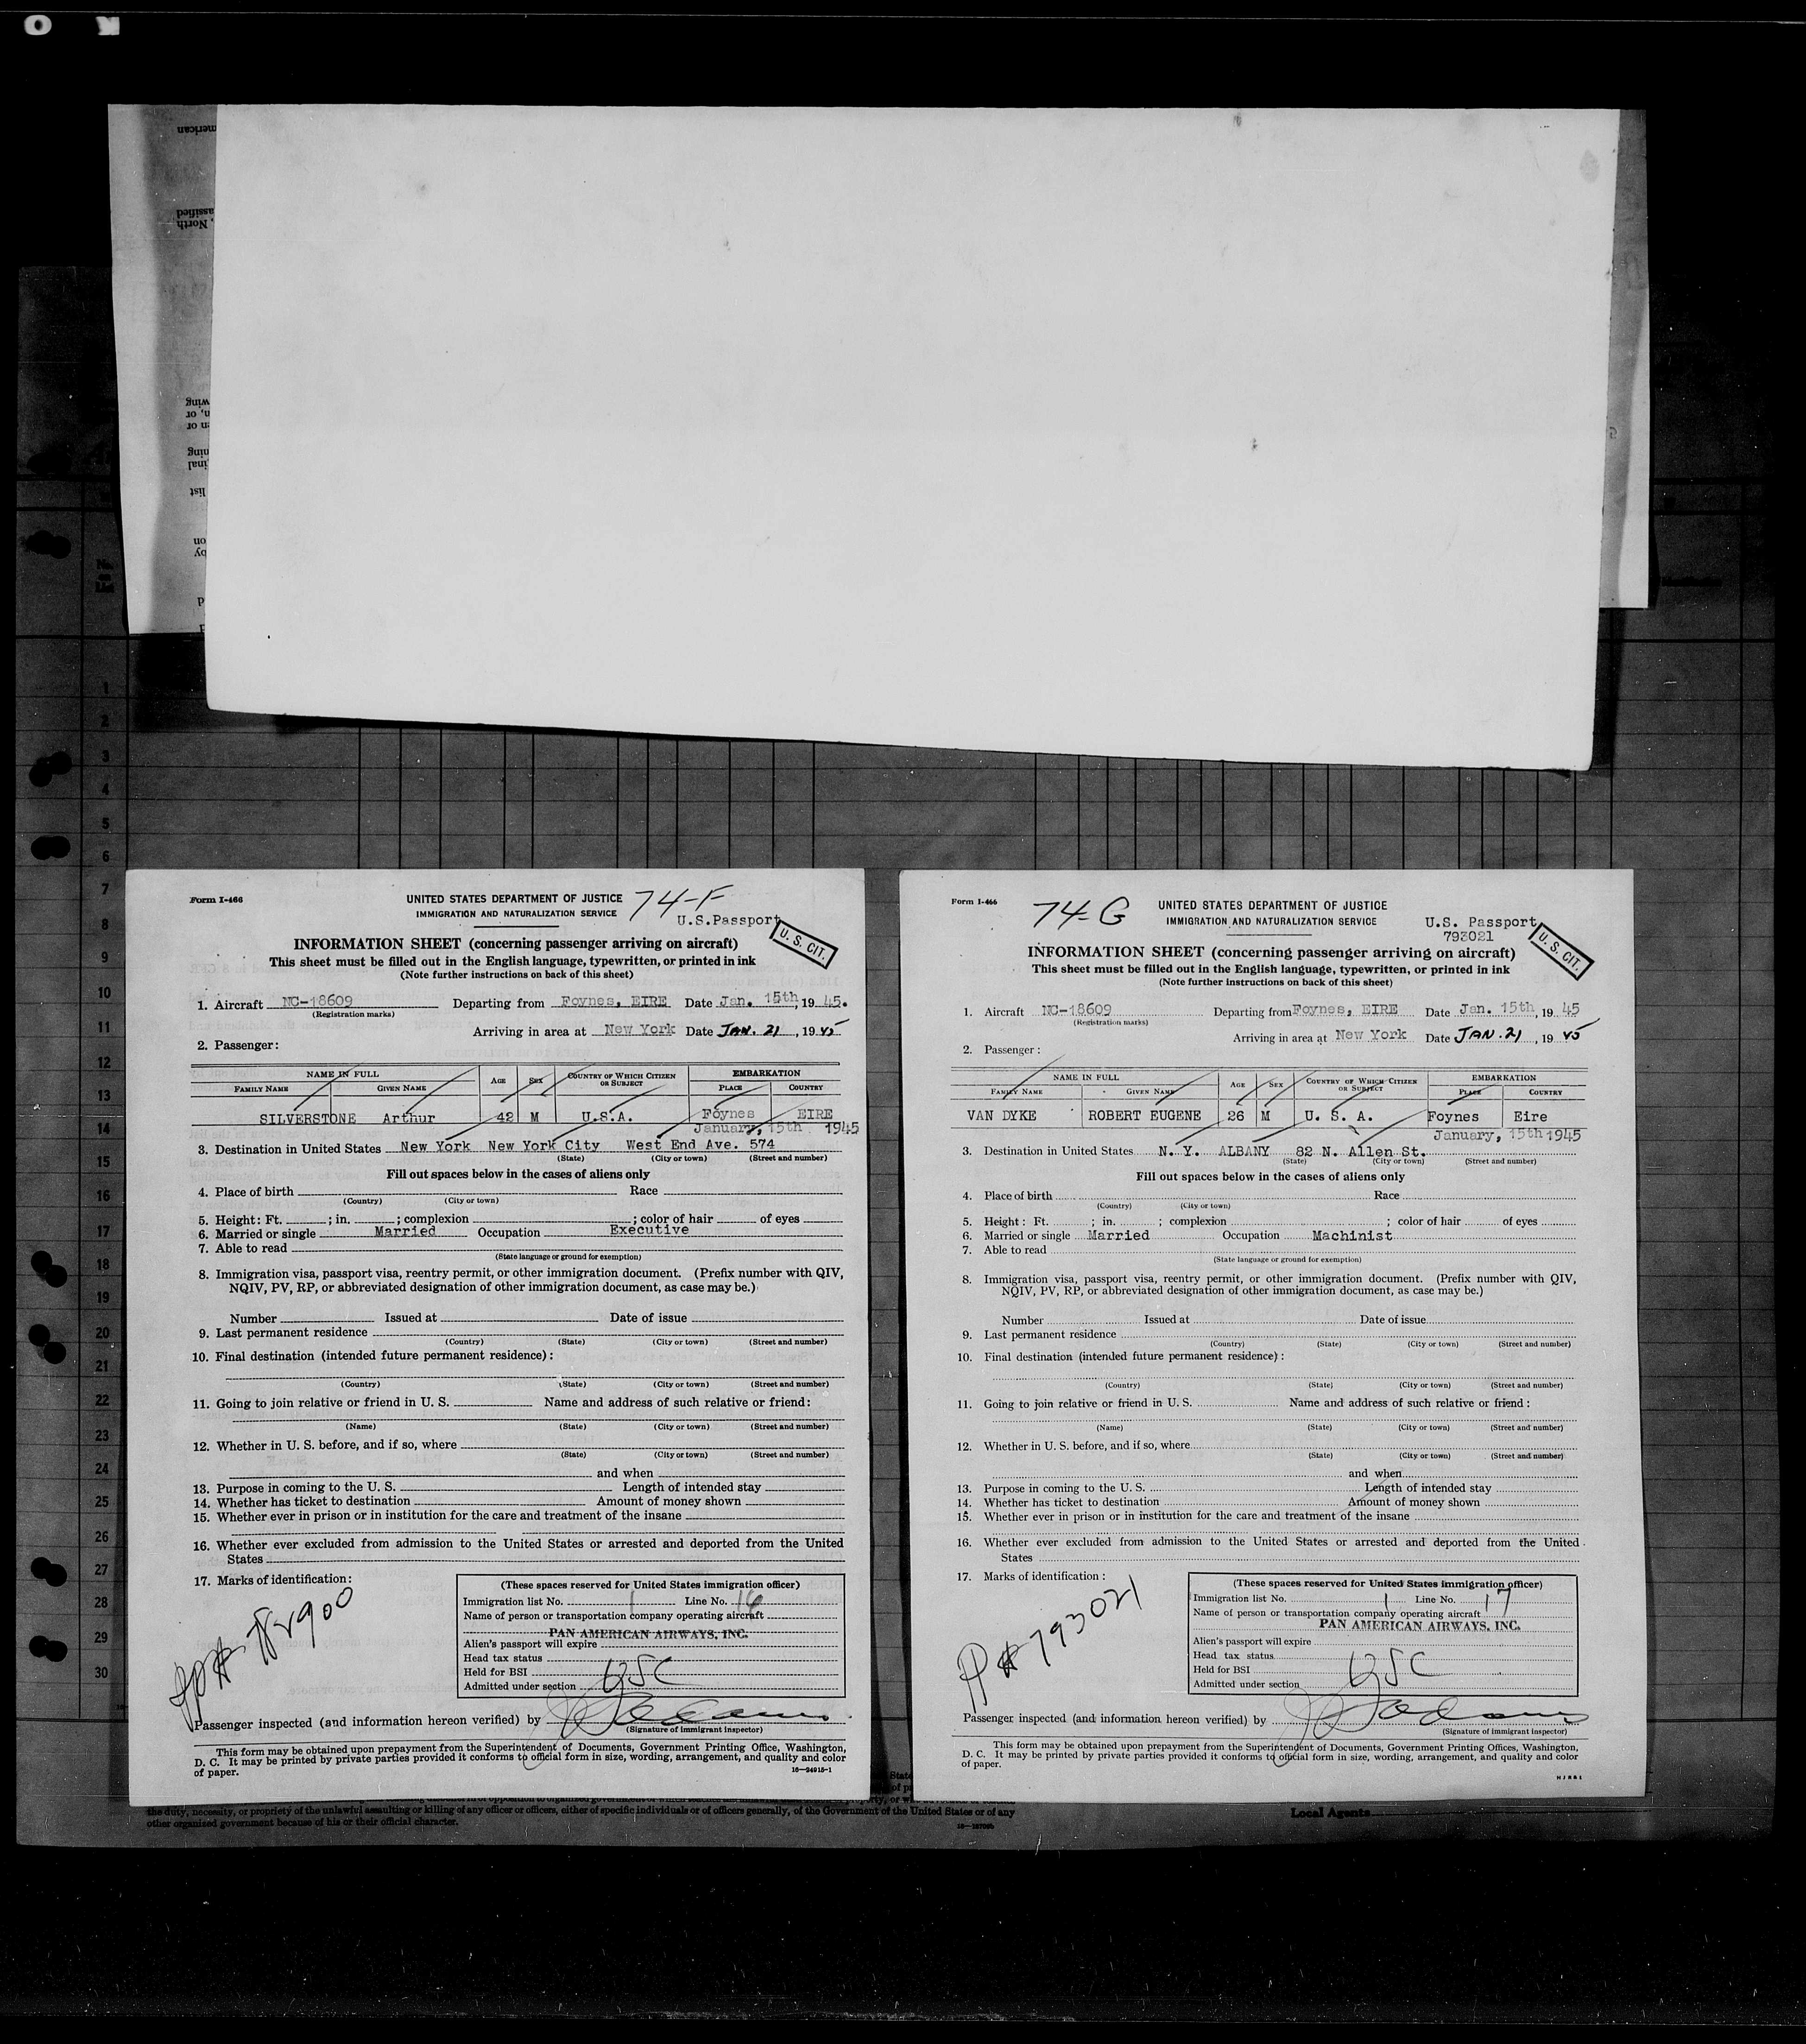 merican
assified
, North
wing
n, or
en or
ning
inal
list
on
by
d
No.
on
List
1
2
3
4
5
6
7
8
9
10
11
12
13
14
15
16
17
18
19
20
21
22
23
24
25
26
27
28
29
30
Form I-466
UNITED STATES DEPARTMENT OF JUSTICE
74-F
IMMIGRATION AND NATURALIZATION SERVICE
U.S.Passport
U. S. CIT.
INFORMATION SHEET (concerning passenger arriving on aircraft)
This sheet must be filled out in the English language, typewritten, or printed in ink
(Note further instructions on back of this sheet)
1. Aircraft NC-18609 Departing from Foynes, EIRE Date Jan. 15th, 1945.
(Registration marks)
Arriving in area at New York Date JAN. 21, 1945
2. Passenger:
NAME IN FULL AGE SEX COUNTRY OF WHICH CITIZEN OR SUBJECT EMBARKATION
FAMILY NAME GIVEN NAME PLACE COUNTRY
SILVERSTONE Arthur 42 M U.S.A. Foynes EIRE
January, 15th 1945
3. Destination in United States New York New York City West End Ave. 574
(State) (City or town) (Street and number)
Fill out spaces below in the cases of aliens only
4. Place of birth Race
(Country) (City or town)
5. Height: Ft. ; in. ; complexion ; color of hair of eyes
6. Married or single Married Occupation Executive
7. Able to read
(State language or ground for exemption)
8. Immigration visa, passport visa, reentry permit, or other immigration document. (Prefix number with QIV,
NQIV, PV, RP, or abbreviated designation of other immigration document, as case may be.)
Number Issued at Date of issue
9. Last permanent residence
(Country) (State) (City or town) (Street and number)
10. Final destination (intended future permanent residence):
(Country) (State) (City or town) (Street and number)
11. Going to join relative or friend in U. S. Name and address of such relative or friend:
(Name) (State) (City or town) (Street and number)
12. Whether in U. S. before, and if so, where
(State) (City or town) (Street and number)
and when
13. Purpose in coming to the U. S. Length of intended stay
14. Whether has ticket to destination Amount of money shown
15. Whether ever in prison or in institution for the care and treatment of the insane
16. Whether ever excluded from admission to the United States or arrested and deported from the United
States
17. Marks of identification:
(These spaces reserved for United States immigration officer)
Immigration list No. 1 Line No. 16
Name of person or transportation company operating aircraft
PAN AMERICAN AIRWAYS, INC.
Alien's passport will expire
Head tax status
Held for BSI
Admitted under section USC
Passenger inspected (and information hereon verified) by
(Signature of immigrant inspector)
This form may be obtained upon prepayment from the Superintendent of Documents, Government Printing Office, Washington,
D. C. It may be printed by private parties provided it conforms to official form in size, wording, arrangement, and quality and color
of paper.
16—24915-1
Form I-466
74-G
UNITED STATES DEPARTMENT OF JUSTICE
IMMIGRATION AND NATURALIZATION SERVICE
U.S. Passport
793021
U. S. CIT.
INFORMATION SHEET (concerning passenger arriving on aircraft)
This sheet must be filled out in the English language, typewritten, or printed in ink
(Note further instructions on back of this sheet)
1. Aircraft NC-18609 Departing from Foynes, EIRE Date Jan. 15th, 1945
(Registration marks)
Arriving in area at New York Date JAN. 21, 1945
2. Passenger:
NAME IN FULL AGE SEX COUNTRY OF WHICH CITIZEN OR SUBJECT EMBARKATION
FAMILY NAME GIVEN NAME PLACE COUNTRY
VAN DYKE ROBERT EUGENE 26 M U. S. A. Foynes Eire
January, 15th 1945
3. Destination in United States N. Y. ALBANY 82 N. Allen St.
(State) (City or town) (Street and number)
Fill out spaces below in the cases of aliens only
4. Place of birth Race
(Country) (City or town)
5. Height: Ft. ; in. ; complexion ; color of hair of eyes
6. Married or single Married Occupation Machinist
7. Able to read
(State language or ground for exemption)
8. Immigration visa, passport visa, reentry permit, or other immigration document. (Prefix number with QIV,
NQIV, PV, RP, or abbreviated designation of other immigration document, as case may be.)
Number Issued at Date of issue
9. Last permanent residence
(Country) (State) (City or town) (Street and number)
10. Final destination (intended future permanent residence):
(Country) (State) (City or town) (Street and number)
11. Going to join relative or friend in U. S. Name and address of such relative or friend:
(Name) (State) (City or town) (Street and number)
12. Whether in U. S. before, and if so, where
(State) (City or town) (Street and number)
and when
13. Purpose in coming to the U. S. Length of intended stay
14. Whether has ticket to destination Amount of money shown
15. Whether ever in prison or in institution for the care and treatment of the insane
16. Whether ever excluded from admission to the United States or arrested and deported from the United
States
17. Marks of identification:
PP# 793021
(These spaces reserved for United States immigration officer)
Immigration list No. 1 Line No. 17
Name of person or transportation company operating aircraft
PAN AMERICAN AIRWAYS, INC.
Alien's passport will expire
Head tax status
Held for BSI
Admitted under section USC
Passenger inspected (and information hereon verified) by
(Signature of immigrant inspector)
This form may be obtained upon prepayment from the Superintendent of Documents, Government Printing Offices, Washington,
D. C. It may be printed by private parties provided it conforms to official form in size, wording, arrangement, and quality and color
of paper.
the duty, necessity, or propriety of the unlawful assaulting or killing of any officer or officers, either of specific individuals or of officers generally, of the Government of the United States or of any
other organized government because of his or their official character.
Local Agents